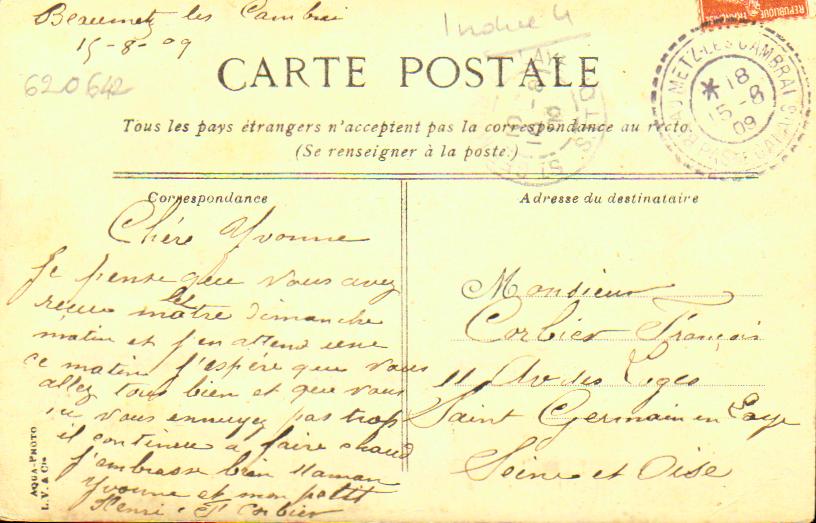 Beaumetz les Cambrai
15-8-09
Indice 4
620642
CARTE POSTALE
Tous les pays étrangers n'acceptent pas la correspondance au recto.
(Se renseigner à la poste.)
Correspondance
Chére Yvonne
Je pense que vous avez
reçue la notre dimanche
matin et j'en attend une
ce matin j'espére que vous
allez tous bien et que vous
vous ennuyez pas trop
il continue a faire chaud
j'embrasse bien Maman
Yvonne et mon petit
Henri. F Corbier
AQUA-PHOTO
L.V. & Cie
Adresse du destinataire
Monsieur
Corbier François
11 Av des Loges
Saint Germain en Laye
Seine et Oise
BEAUMETZ-LES-CAMBRAI
PAS DE CALAIS
18
15 -8
09
REPUBLIQUE